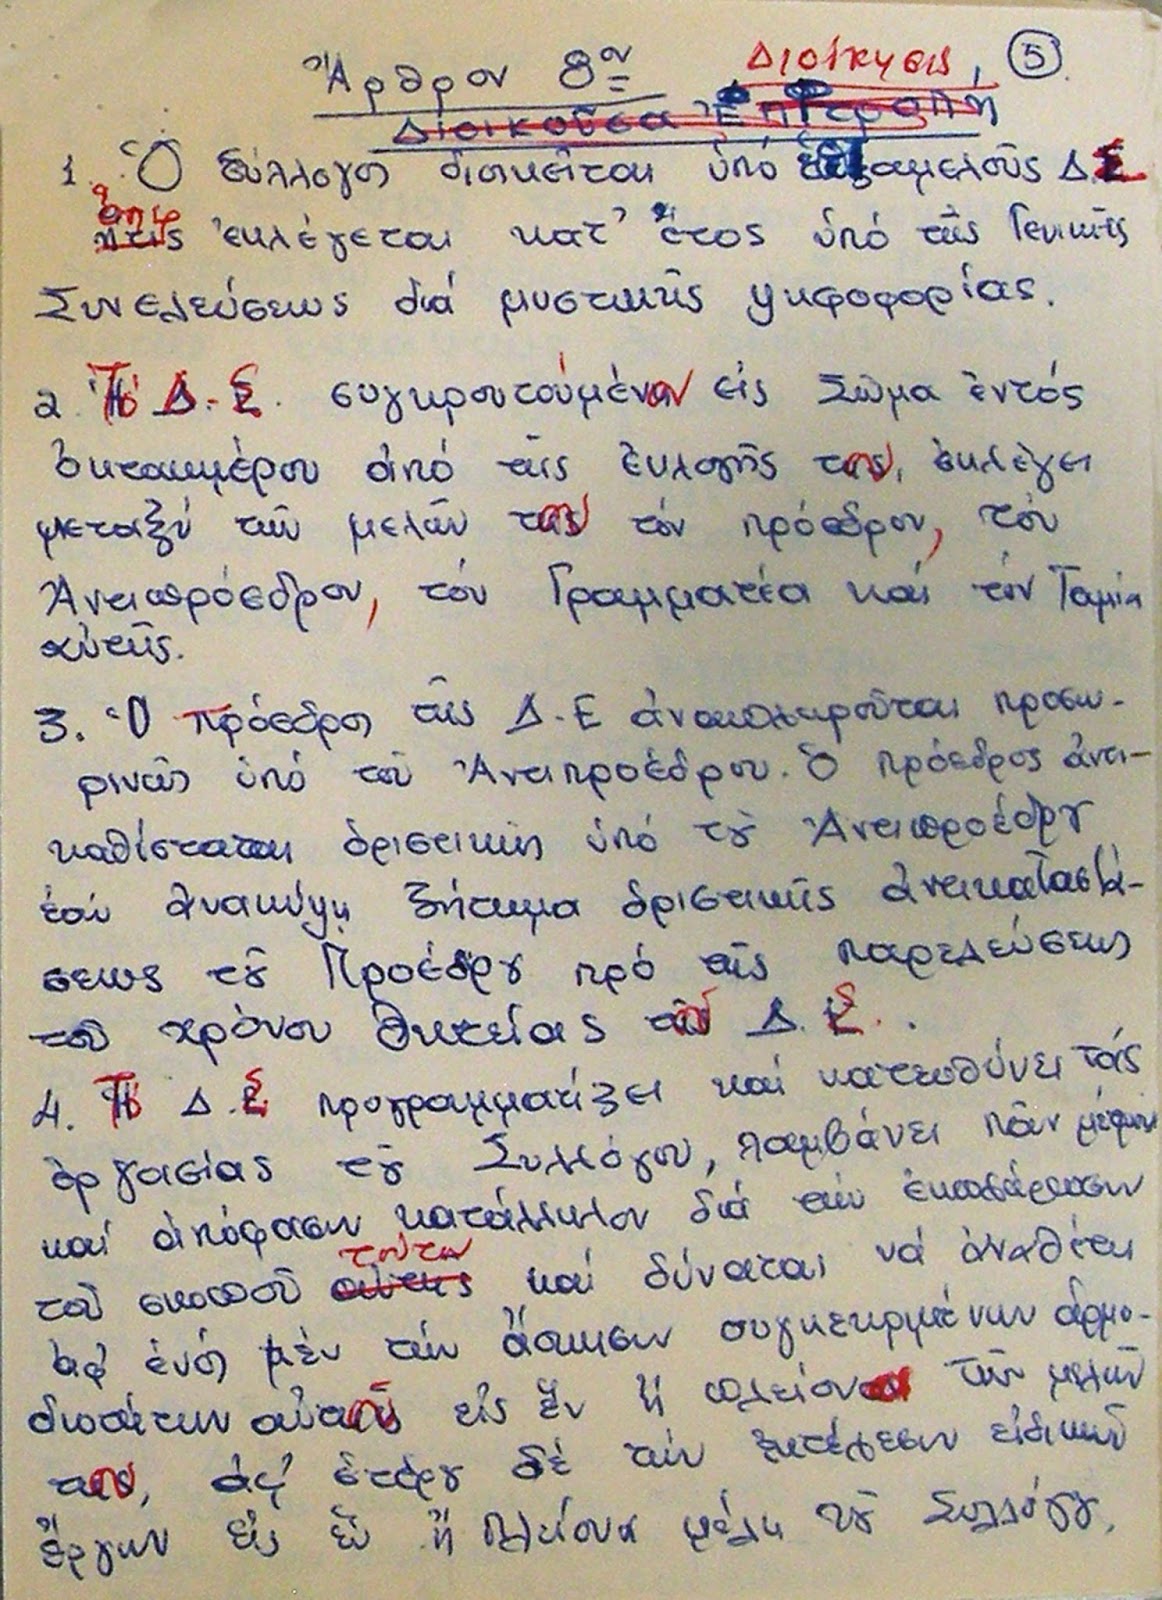 Ἄρθρον 8ον Διοίκησις, 5
Διοικοῦσα Ἐπιτροπή
1. Ὁ Σύλλογος διοικεῖται ὑπό ἑξαμελοῦς Δ.Σ
ὅπερ ἐκλέγεται κατ' ἔτος ὑπό τῆς Γενικῆς
Συνελεύσεως διά μυστικῆς ψηφοφορίας.
2. Τό Δ.Σ. συγκροτούμενον εἰς Σῶμα ἐντός
ὀκταημέρου ἀπό τῆς ἐκλογῆς του, ἐκλέγει
μεταξύ τῶν μελῶν του τόν πρόεδρον, τόν
Ἀντιπρόεδρον, τόν Γραμματέα καί τόν Ταμία
αὐτῆς.
3. Ὁ πρόεδρος τῆς Δ.Ε ἀναπληροῦται προσω-
ρινῶς ὑπό τοῦ Ἀντιπροέδρου. Ὁ πρόεδρος ἀντι-
καθίσταται ὁριστικῶς ὑπό τοῦ Ἀντιπροέδρου
ἐάν ἀνακύψη ζήτημα ὁριστικῆς ἀντικαταστά-
σεως τοῦ Προέδρου πρό τῆς παρελεύσεως
τοῦ χρόνου θητείας τοῦ Δ.Σ.
4. Τό Δ.Σ προγραμματίζει καί κατευθύνει τάς
ἐργασίας τοῦ Συλλόγου, λαμβάνει πᾶν μέτρον
καί ἀπόφασιν κατάλληλον διά τήν ἐκπλήρωσιν
τοῦ σκοποῦ αὐτῆς τούτου καί δύναται νά ἀναθέτει
ἀφ' ἑνός μέν τήν ἄσκησιν συγκεκριμένων ἁρμο-
διοτήτων αὐτοῦ εἰς ἕν ἤ πλείονα τῶν μελῶν
του, ἀφ' ἑτέρου δέ τήν ἐκτέλεσιν εἰδικῶν
ἔργων εἰς ἕν ἤ πλείονα μέλη τοῦ Συλλόγου.